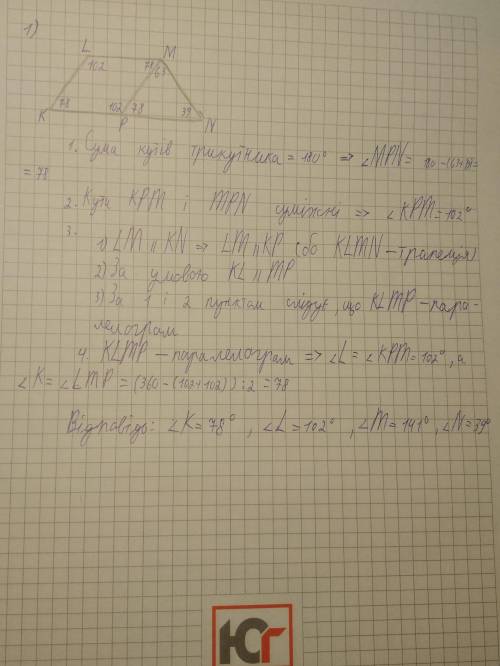 1)
L
M
102
78
63
78
102
78
39
K
P
N
1. Сума кутів трикутника = 180° => ∠MPN = 180-(63+39)=
= 78
2. Кути KPM і MPN суміжні => ∠KPM = 102°
3. 1) LM || KN => LM || KP (бо KLMN - трапеція)
2) За умовою KL || MP
3) За 1 і 2 пунктам слідує, що KLMP - пара-
лелограм
4. KLMP - паралелограм => ∠L = ∠KPM = 102°, а
∠K = ∠LMP = (360-(102+102)):2 = 78
Відповідь: ∠K = 78°, ∠L = 102°, ∠M = 141°, ∠N = 39°
ЮГ